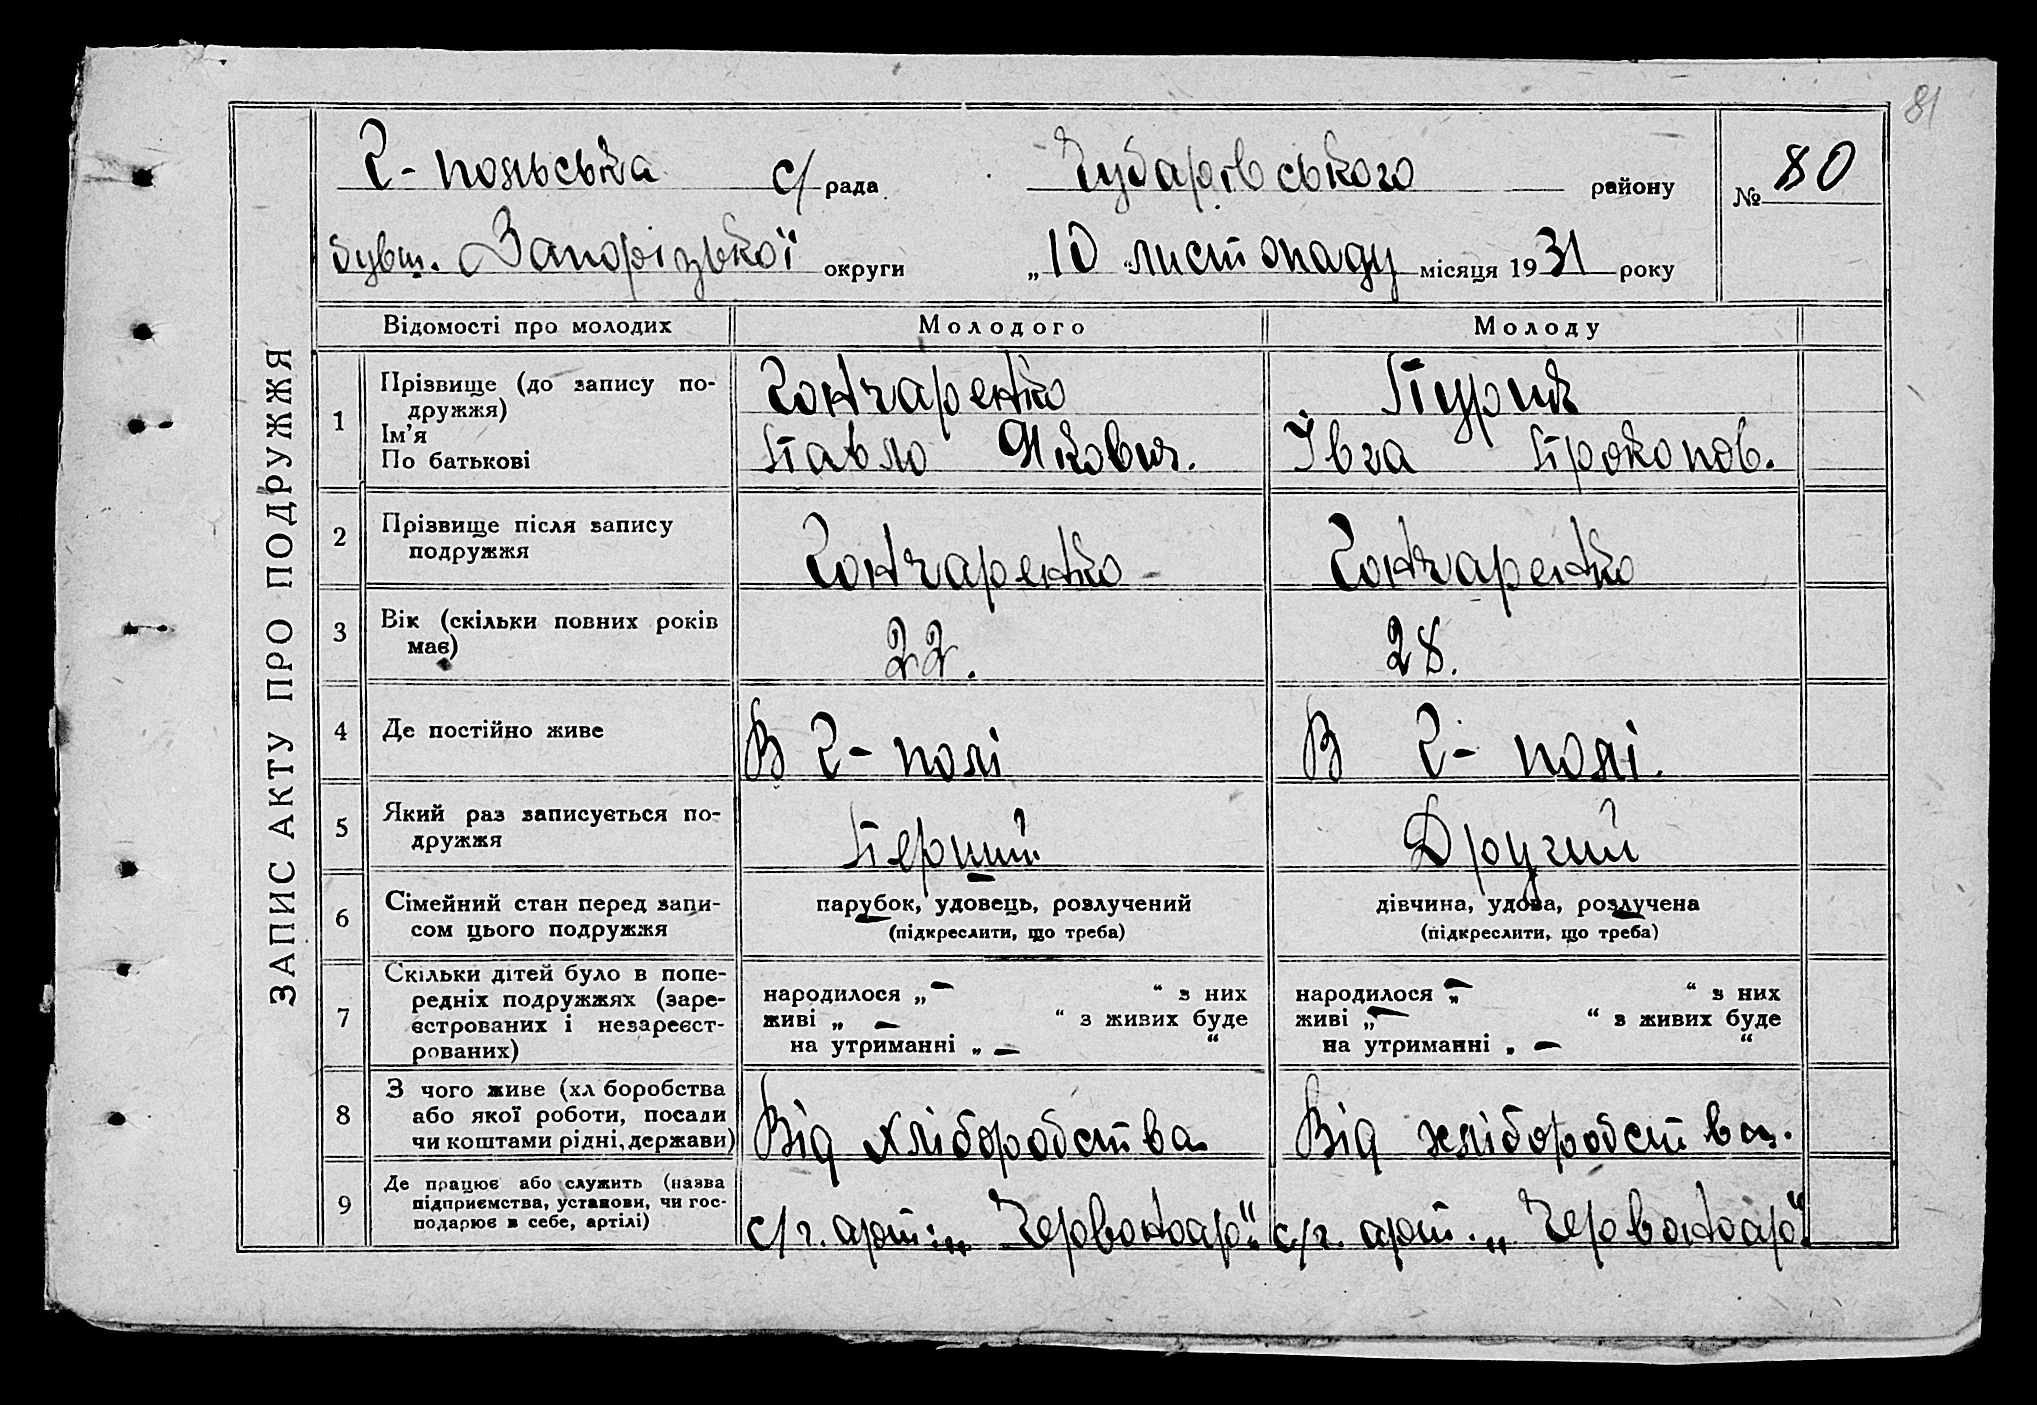 81
Г-польська с/рада Чубарівського району № 80
бувш. Запорізької округи „10“ листопаду місяця 1931 року
ЗАПИС АКТУ ПРО ПОДРУЖЖЯ
Відомості про молодих Молодого Молоду
1 Прізвище (до запису по-
дружжя) Гончаренко Пурик
Ім'я
По батькові Павло Якович. Івга Прокопов.
2 Прізвище після запису
подружжя Гончаренко Гончаренко
3 Вік (скільки повних років
має) 22. 28.
4 Де постійно живе В Г-полі В Г-полі.
5 Який раз записується по-
дружжя Перший Другий
6 Сімейний стан перед запи-
сом цього подружжя
парубок, удовець, розлучений
(підкреслити, що треба)
дівчина, удова, розлучена
(підкреслити, що треба)
7 Скільки дітей було в попе-
редніх подружжях (заре-
єстрованих і незареєст-
рованих)
народилося „ — “ з них
живі „ — “ з живих буде
на утриманні „ — “
народилося „ — “ з них
живі „ — “ з живих буде
на утриманні „ — “
8 З чого живе (хл боробства
або якої роботи, посади
чи коштами рідні, держави)
Від хліборобства Від хліборобства.
9 Де працює або служить (назва
підприємства, установи, чи гос-
подарює в себе, артілі)
с/г. арт. „Червонояр“. с/г. арт. „Червонояр“.